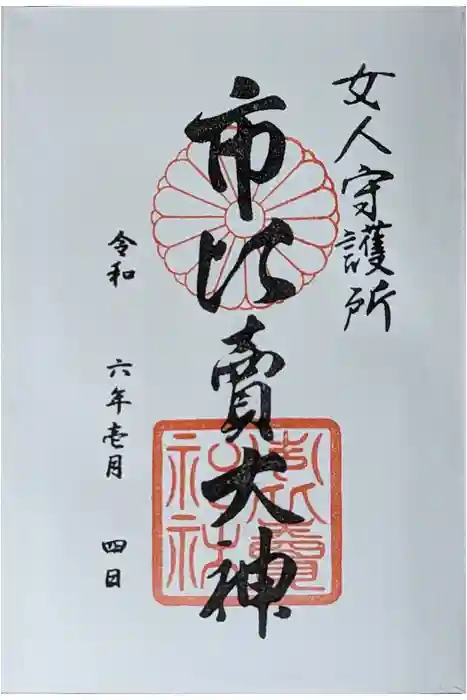 女人守護所
市比賣大神
令和 六年壱月 四日